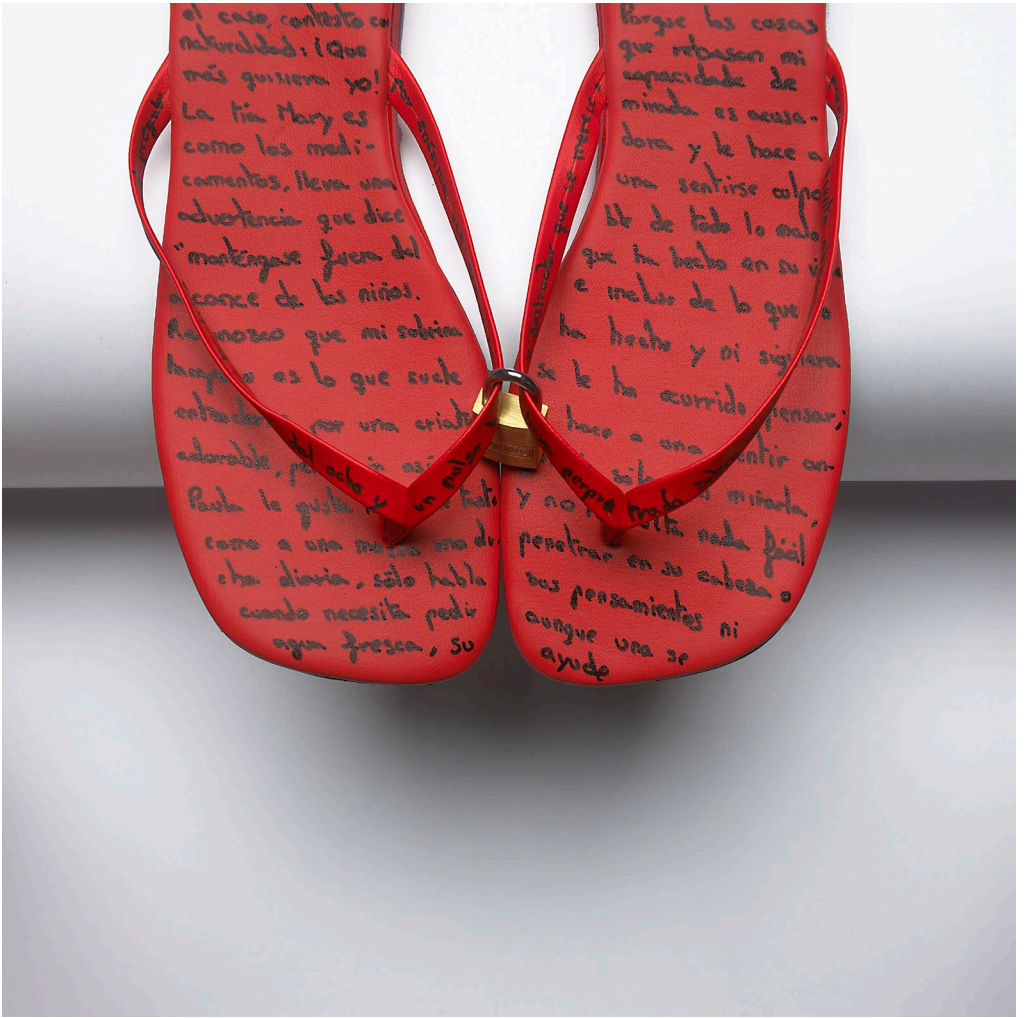 el caso, contesto co
naturalidad: ¡Que
más quisiera yo!
La tía Mary es
como los medi-
camentos, lleva una
advertencia que dice
"manténgase fuera del
alcance de los niños.
Reconozco que mi sobrina
tampoco es lo que suele
entender por una criatu
adorable, así
Paula le gusta tanto
como a una me du-
cha diaria, sólo habla
cuando necesita pedir
agua fresca, su
del este y un pulso
Porque las cosas
que rebasan mi
capacidade de
mirada es acusa-
dora y le hace a
una sentirse culpa
ble de todo lo malo
que ha hecho en su
e incluso de lo que
ha hecho y ni siquiera
se le ha ocurrido pensar;
hace a una sentir an-
mirarla,
y no nada fácil
penetrar en su cabeza o
sus pensamientos ni
aunque una se
ayude
que se merece
siempre tirada